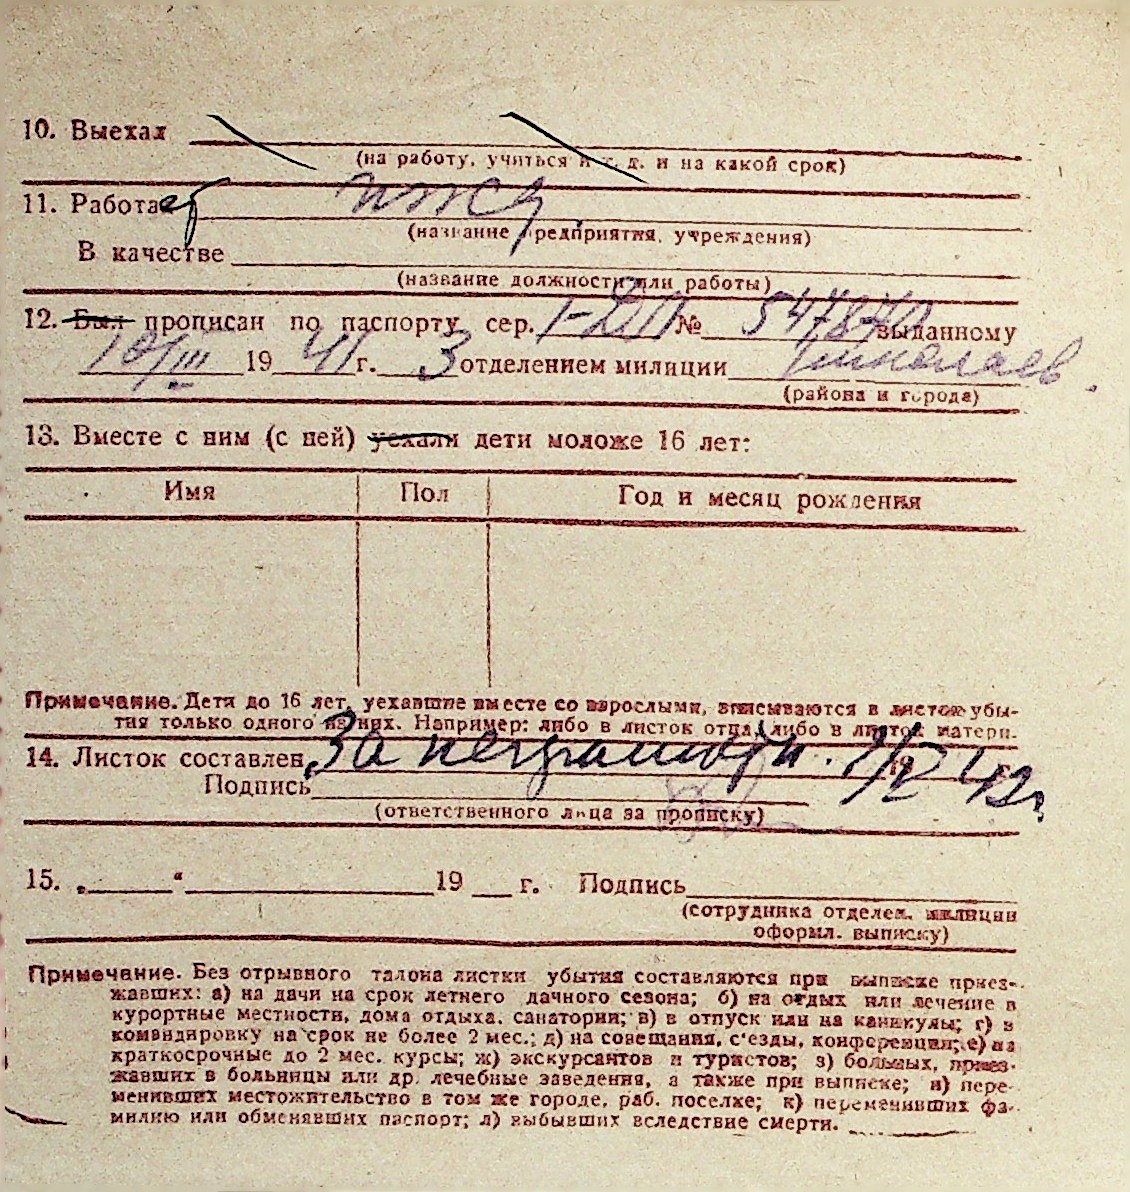 10. Выехал
(на работу, учиться и т. д. и на какой срок)
11. Работает
(название предприятия, учреждения)
В качестве
(название должности или работы)
12. Был прописан по паспорту сер. 1-ДП № 547870 выданному
10/III 1941 г. 3 отделением милиции Николаев.
(района и города)
13. Вместе с ним (с ней) уехали дети моложе 16 лет:
Имя Пол Год и месяц рождения
Примечание. Дети до 16 лет, уехавшие вместе со взрослыми, вписываются в листок убы-
тия только одного из них. Например: либо в листок отца, либо в листок матери.
14. Листок составлен За неграмотн. 42 г.
Подпись
(ответственного лица за прописку)
15. „ “ 19 г. Подпись
(сотрудника отделен. милиции
оформл. выписку)
Примечание. Без отрывного талона листки убытия составляются при выписке приез-
жавших: а) на дачи на срок летнего дачного сезона; б) на отдых или лечение в
курортные местности, дома отдыха, санатории; в) в отпуск или на каникулы; г) в
командировку на срок не более 2 мес.; д) на совещания, с'езды, конференции; е) на
краткосрочные до 2 мес. курсы; ж) экскурсантов и туристов; з) больных, приез-
жавших в больницы или др. лечебные заведения, а также при выписке; и) пере-
менивших местожительство в том же городе, раб. поселке; к) переменивших фа-
милию или обменявших паспорт; л) выбывших вследствие смерти.